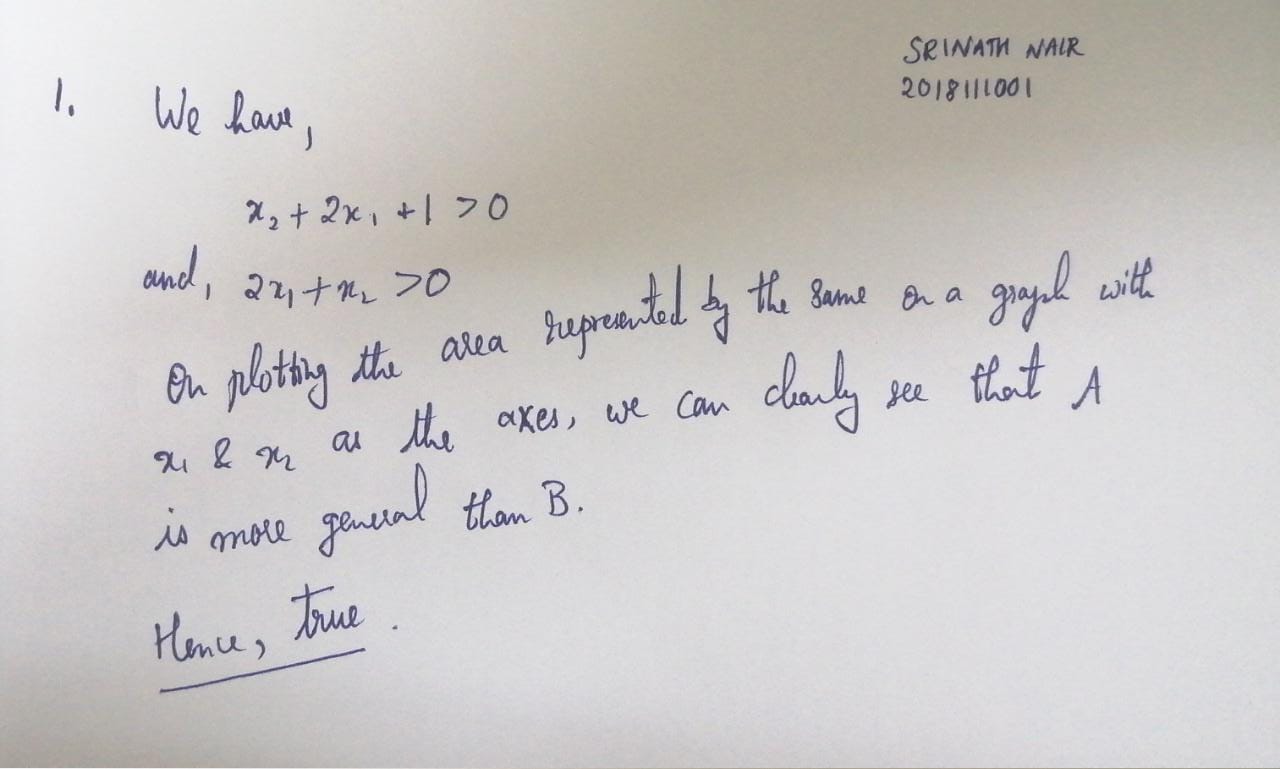 SRINATH NAIR
2018111001
1. We have,
x₂ + 2x₁ + 1 > 0
and, 2x₁ + x₂ > 0
On plotting the area represented by the same on a graph with
x₁ & x₂ as the axes, we can clearly see that A
is more general than B.
Hence, true.